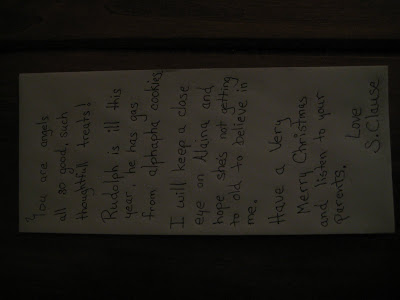 You are angels
all so good, such
thoughtfull treats!
Rudolph is ill this
year, he has gas
from alphapha cookies
I will keep a close
eye on Naina and
hope she's not getting
to old to believe in
me.
Have a Very
Merry Christmas
and listen to your
parents.
Love
S. Clause